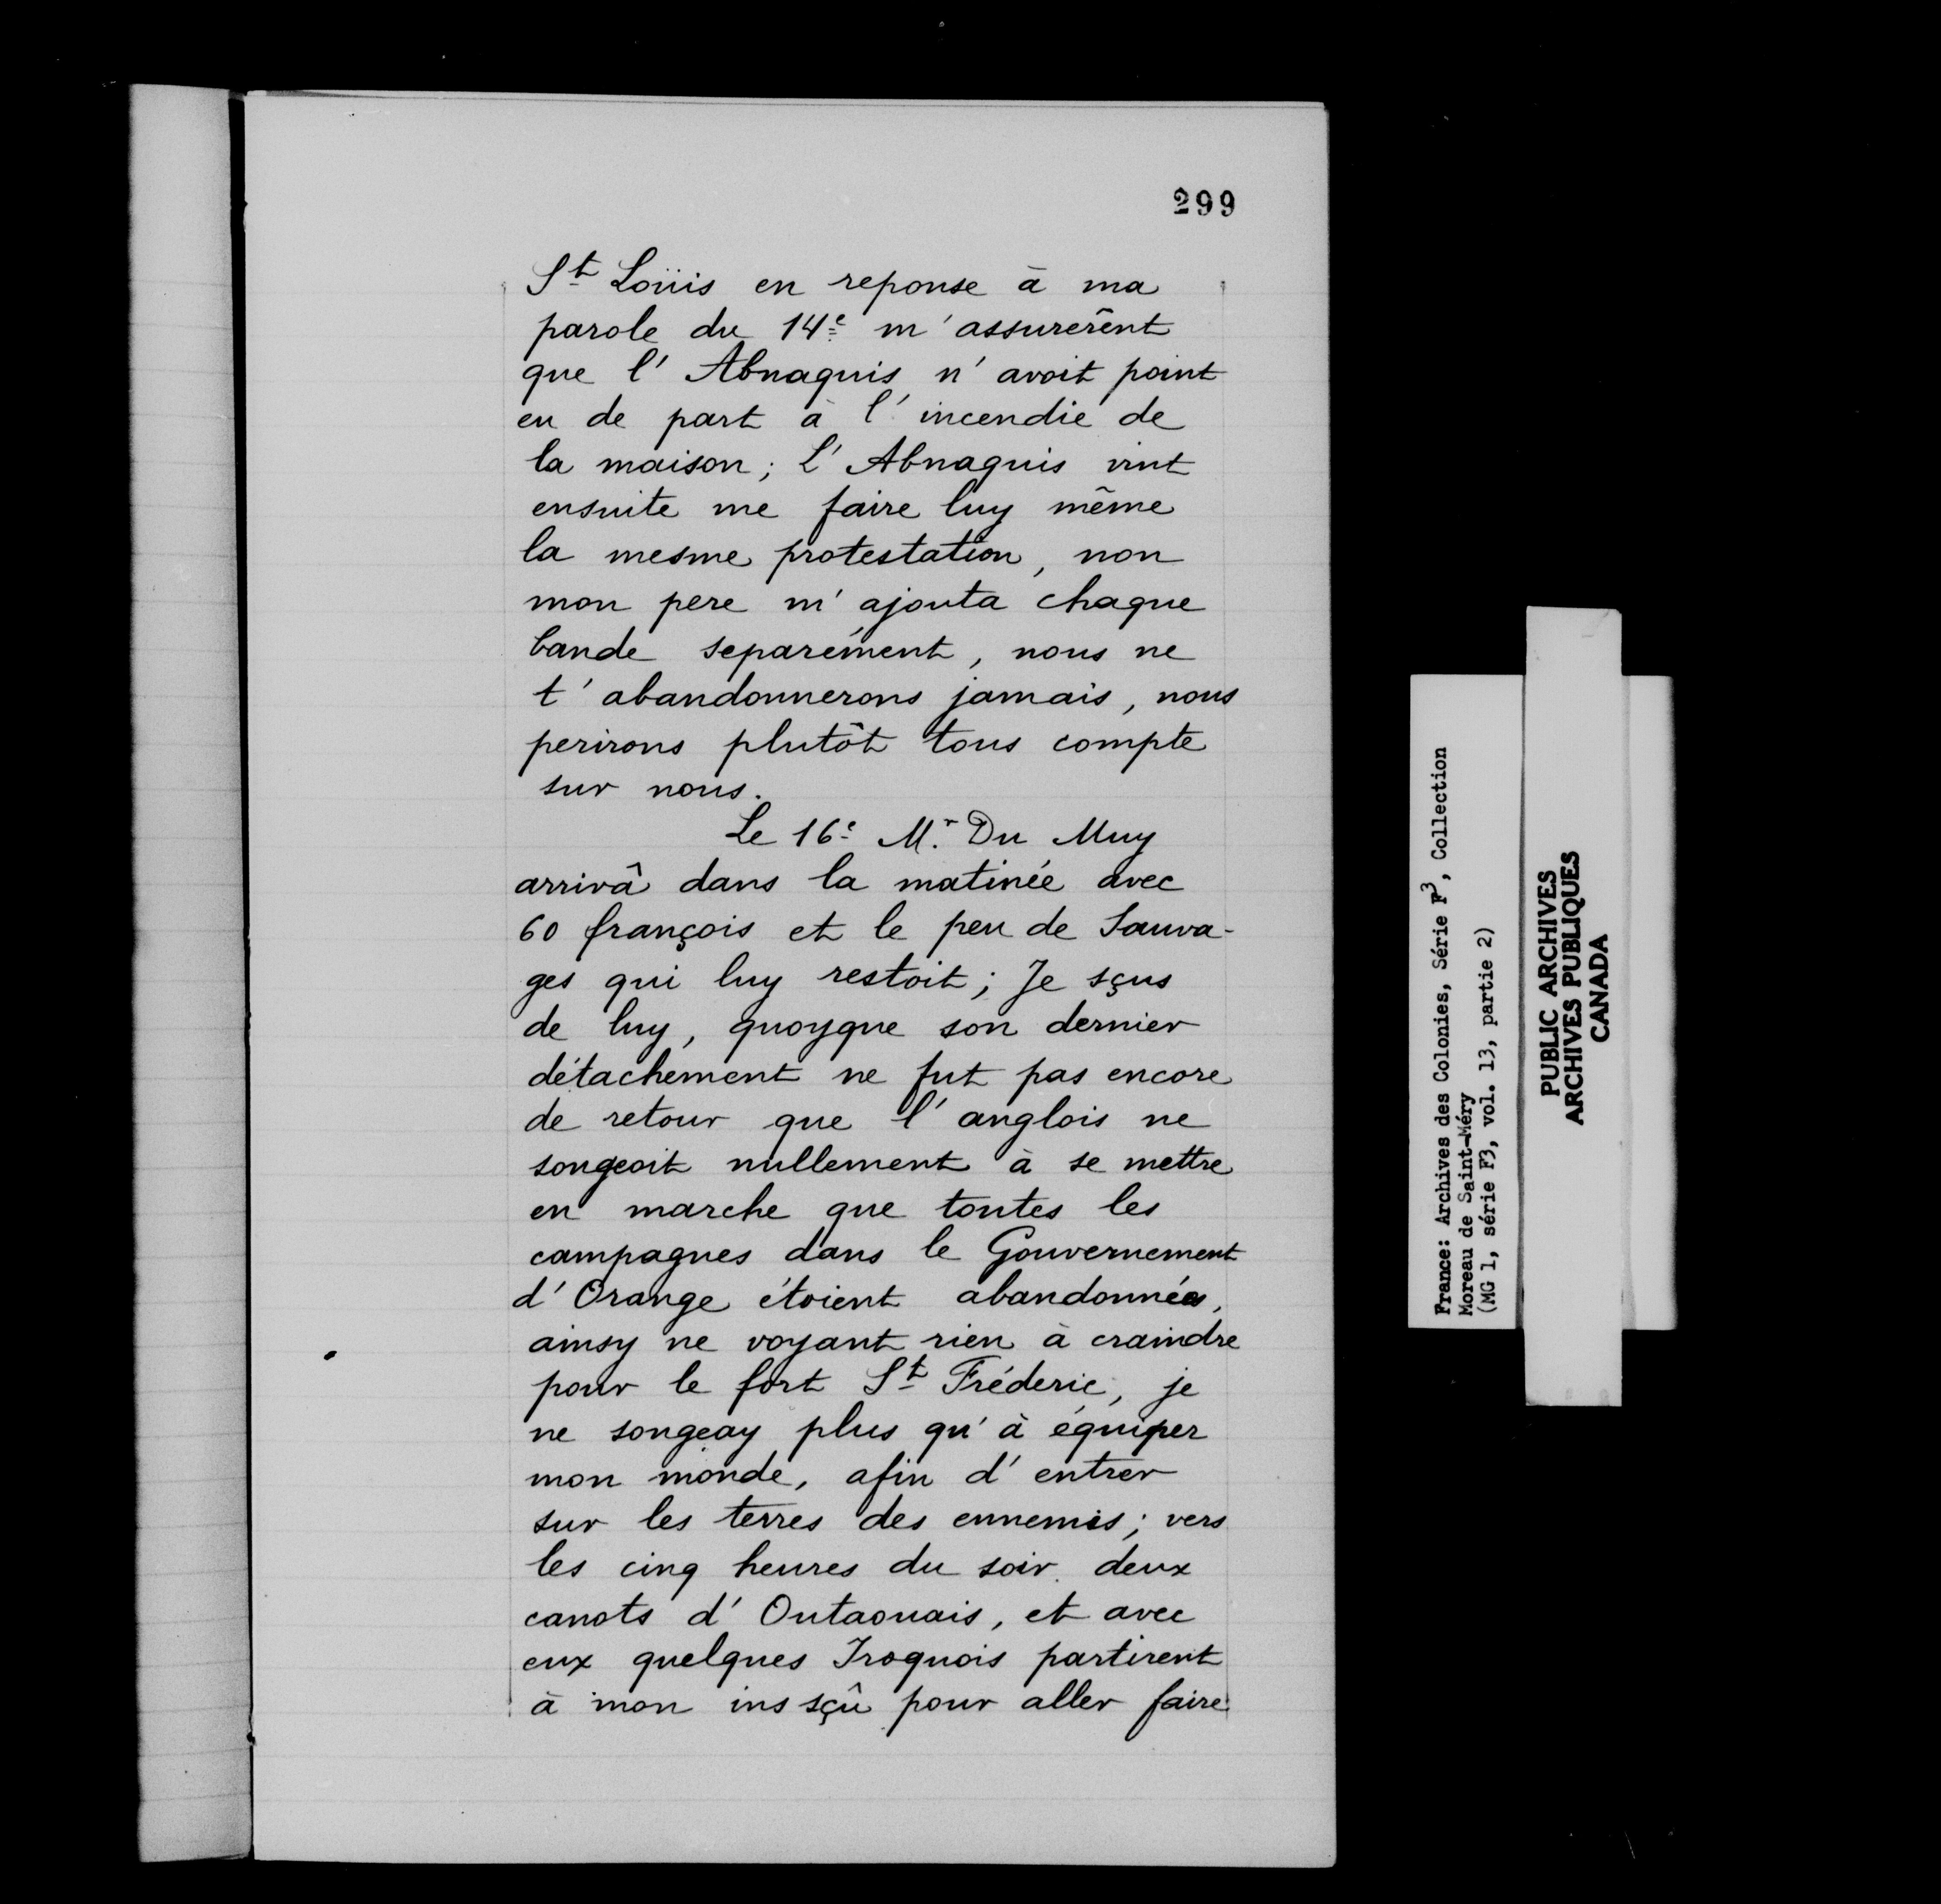 299
St Loüis en reponse à ma
parole du 14e m'assurerênt
que l'Abnaquis n'avoit point
eu de part à l'incendie de
la maison; L'Abnaquis vint
ensuite me faire luy même
la mesme protestation, non
mon pere m'ajouta chaque
bande separément, nous ne
t'abandonnerons jamais, nous
perirons plutôt tous compte
sur nous.
Le 16e Mr Du Muy
arrivâ dans la matinée avec
60 françois et le peu de Sauva-
ges qui luy restoit; Je sçus
de luy, quoyque son dernier
détachement ne fut pas encore
de retour que l'anglois ne
songeoit nullement à se mettre
en marche que toutes les
campagnes dans le Gouvernement
d'Orange étoient abandonnées,
ainsy ne voyant rien à craindre
pour le fort St Fréderic, je
ne songeay plus qu'à équiper
mon monde, afin d'entrer
sur les terres des ennemis; vers
les cinq heures du soir deux
canots d'Outaouais, et avec
eux quelques Iroquois partirent
à mon ins sçû pour aller faire
France: Archives des Colonies, Série F3, Collection
Moreau de Saint-Méry
(MG 1, série F3, vol. 13, partie 2)
PUBLIC ARCHIVES
ARCHIVES PUBLIQUES
CANADA